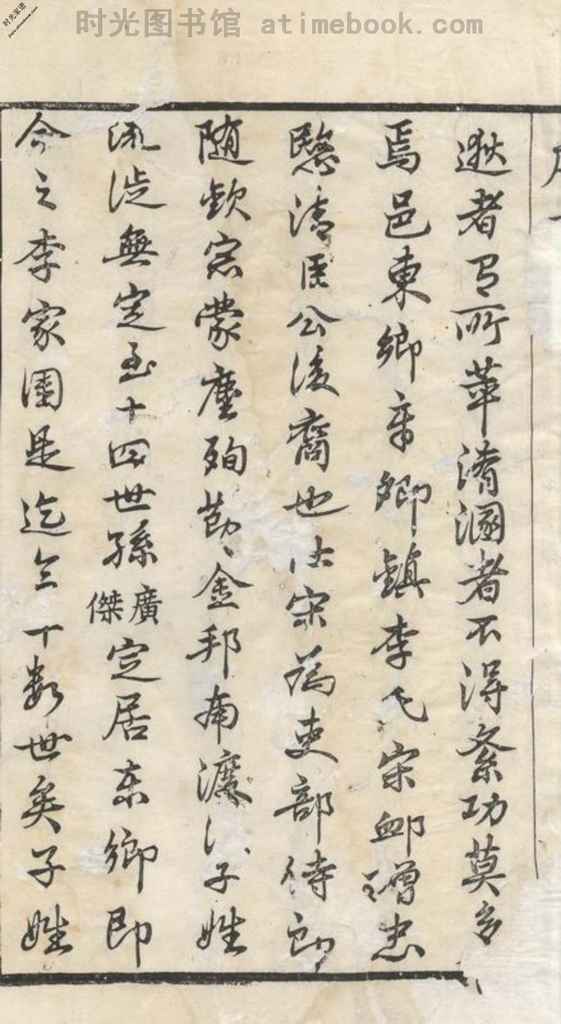 时光图书馆 atimebook.com
逖者有所萃淆溷者不得紊功莫多
焉邑東鄉辛卿鎮李氏宋卹贈忠
愍清臣公後裔也仕宋為吏部侍郎
随欽宗蒙塵殉節金邦南渡後子姓
流徙無定至十四世孫廣傑定居东鄉即
今之李家園是迄今十数世矣子姓